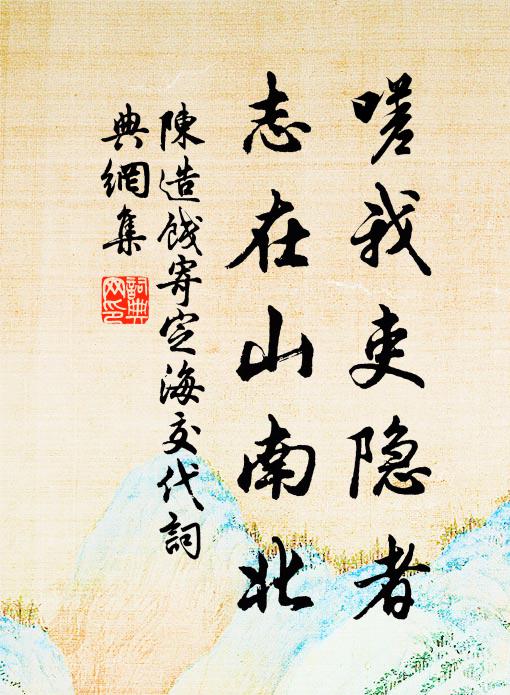 嗟我吏隐者
志在山南北
陳造餞寄定海交代詞
典網集
詞典網印